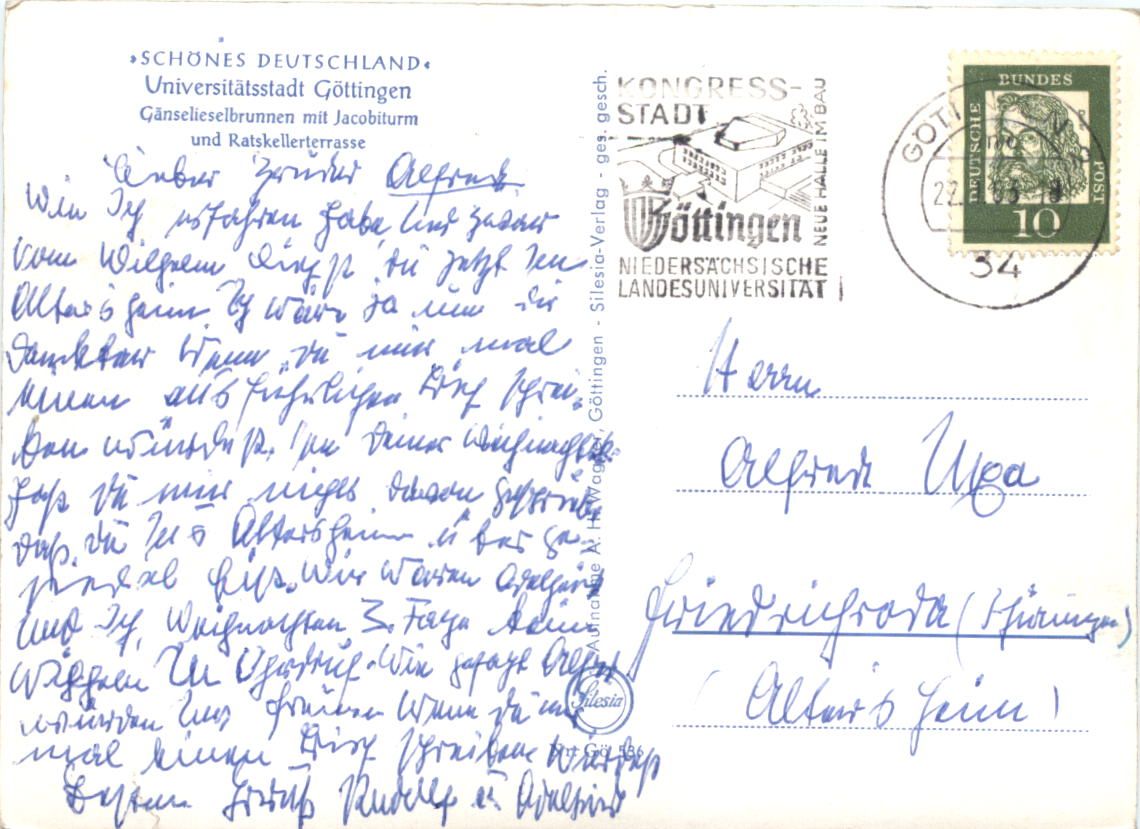 »SCHÖNES DEUTSCHLAND«
Universitätsstadt Göttingen
Gänselieselbrunnen mit Jacobiturm
und Ratskellerterrasse
Lieber Bruder Alfred
Wie Ich erfahren habe und zwar
vom Wilhelm bist du jetzt im
Altersheim Ich wäre ja nun dir
dankbar wenn du mir mal
einen ausführlichen Brief schrei-
ben würdest. In deiner
hast du mir nichts davon geschrieben
daß du Ins Altersheim über ge-
siedel bist. Wir waren Adelheid
und Ich, Weihnachten 3. Tage beim
Wilhelm In Ohrdruf. Wie gesagt Alfred
würden uns freuen wenn du mir
mal einen Brief schreiben würdest
Besten Gruß Rudolf u Adelheid
Aufnahme A. H. Wagner, Göttingen - Silesia-Verlag - ges. gesch.
Silesia
Nr. Gö 536
KONGRESS-
STADT
NEUE HALLE IM BAU
Göttingen
NIEDERSÄCHSISCHE
LANDESUNIVERSITÄT
GÖTTINGEN
22.
34
DEUTSCHE
BUNDES
POST
10
Herrn
Alfred
Friedrichroda (Thüringen)
(Altersheim)